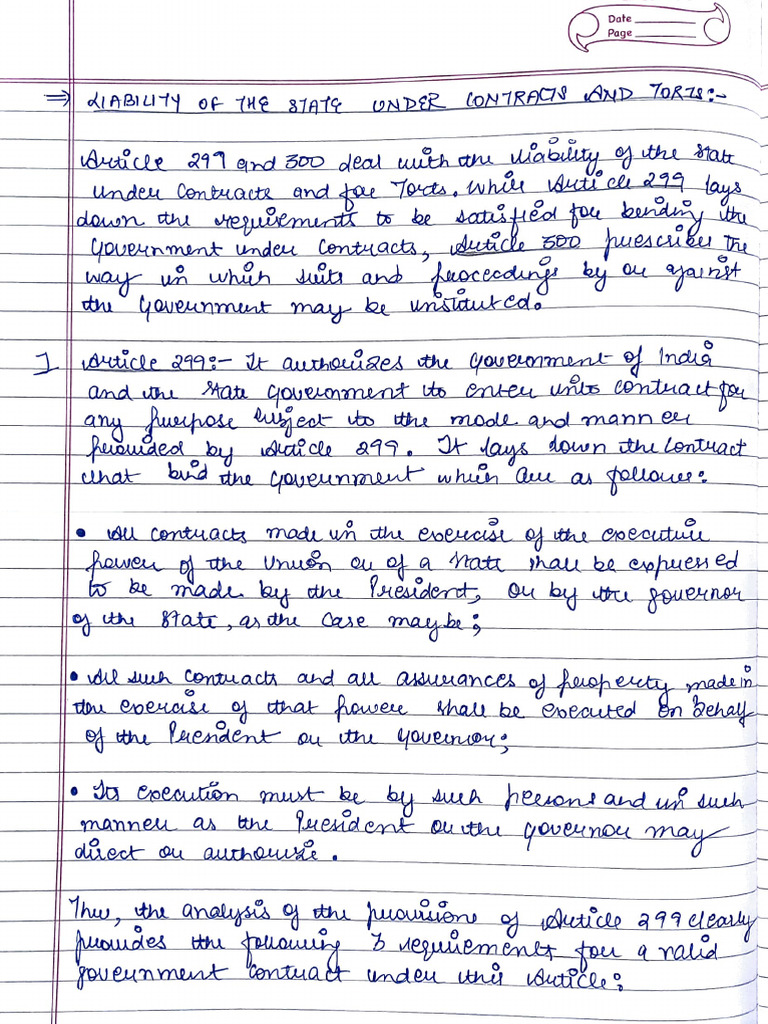 Date
Page
⇒ LIABILITY OF THE STATE UNDER CONTRACTS AND TORTS:-
Article 299 and 300 deal with the liability of the State
under Contracts and for Torts. While Article 299 lays
down the requirements to be satisfied for bending the
Government under Contracts, Article 300 prescribes the
way in which suits and proceedings by or against
the Government may be instituted.
1 Article 299:- It authorizes the Government of India
and the State Government to enter into contract for
any purpose subject to the mode and manner
provided by Article 299. It lays down the Contract
that bind the Government which are as follows:
• All contracts made in the exercise of the executive
power of the Union or of a State shall be expressed
to be made by the President, or by the governor
of the State, as the case maybe;
• All such contracts and all assurances of property made in
the exercise of that power shall be executed on behalf
of the President or the Governor;
• Its execution must be by such persons and in such
manner as the President or the governor may
direct or authorize.
Thus, the analysis of the provisions of Article 299 clearly
provides the following 3 requirements for a valid
government contract under this Article: